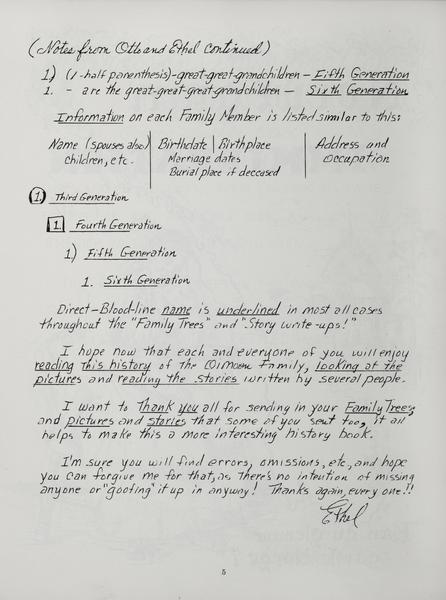 (Notes from Otto and Ethel continued)
1) (1-half parenthesis)-great-great-grandchildren – Fifth Generation
1. - are the great-great-great-grandchildren – Sixth Generation
Information on each Family Member is listed similar to this:
Name (spouses also) | Birthdate | Birthplace | Address and
children, etc. | Marriage dates | occupation
Burial place if deceased
1. Third Generation
1. Fourth Generation
1) Fifth Generation
1. Sixth Generation
Direct-Blood-line name is underlined in most all cases
throughout the "Family Trees" and "Story write-ups!"
I hope now that each and everyone of you will enjoy
reading this history of the Family, looking at the
pictures and reading the stories written by several people.
I want to Thank you all for sending in your Family Trees,
and pictures and stories that some of you sent too, it all
helps to make this a more interesting history book.
I'm sure you will find errors, omissions, etc., and hope
you can forgive me for that, as there's no intention of missing
anyone or "goofing" it up in anyway! Thanks again, every one!!
Ethel
5